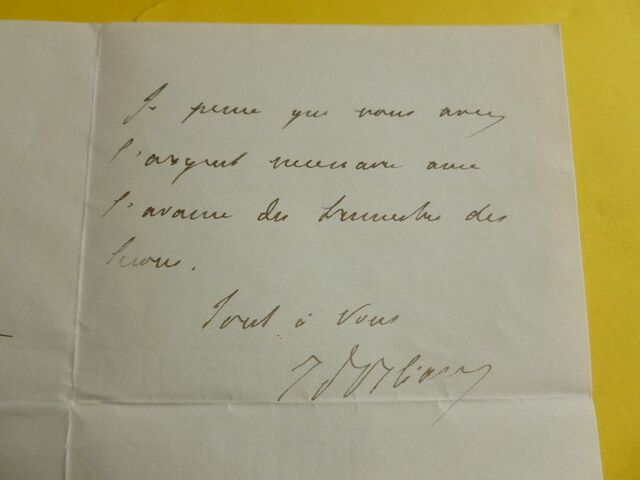 Je pense que vous avez
l'argent necessaire avec
l'avance du trimestre des
lecons.
Tout à Vous
d'Orléans